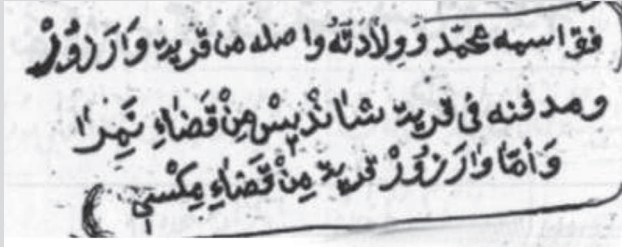 فقو اسمه محمّد وَوِلاَدَتُهُ واصله من قرية وَارَزُوْزْ
ومدفنه فى قرية شاندِبِسْ مِنْ قَضَاءِ نَمِرَا
وَأمَّا وَارَزُوْزْ قرية مِنْ قَضَاءِ مِكْسِى